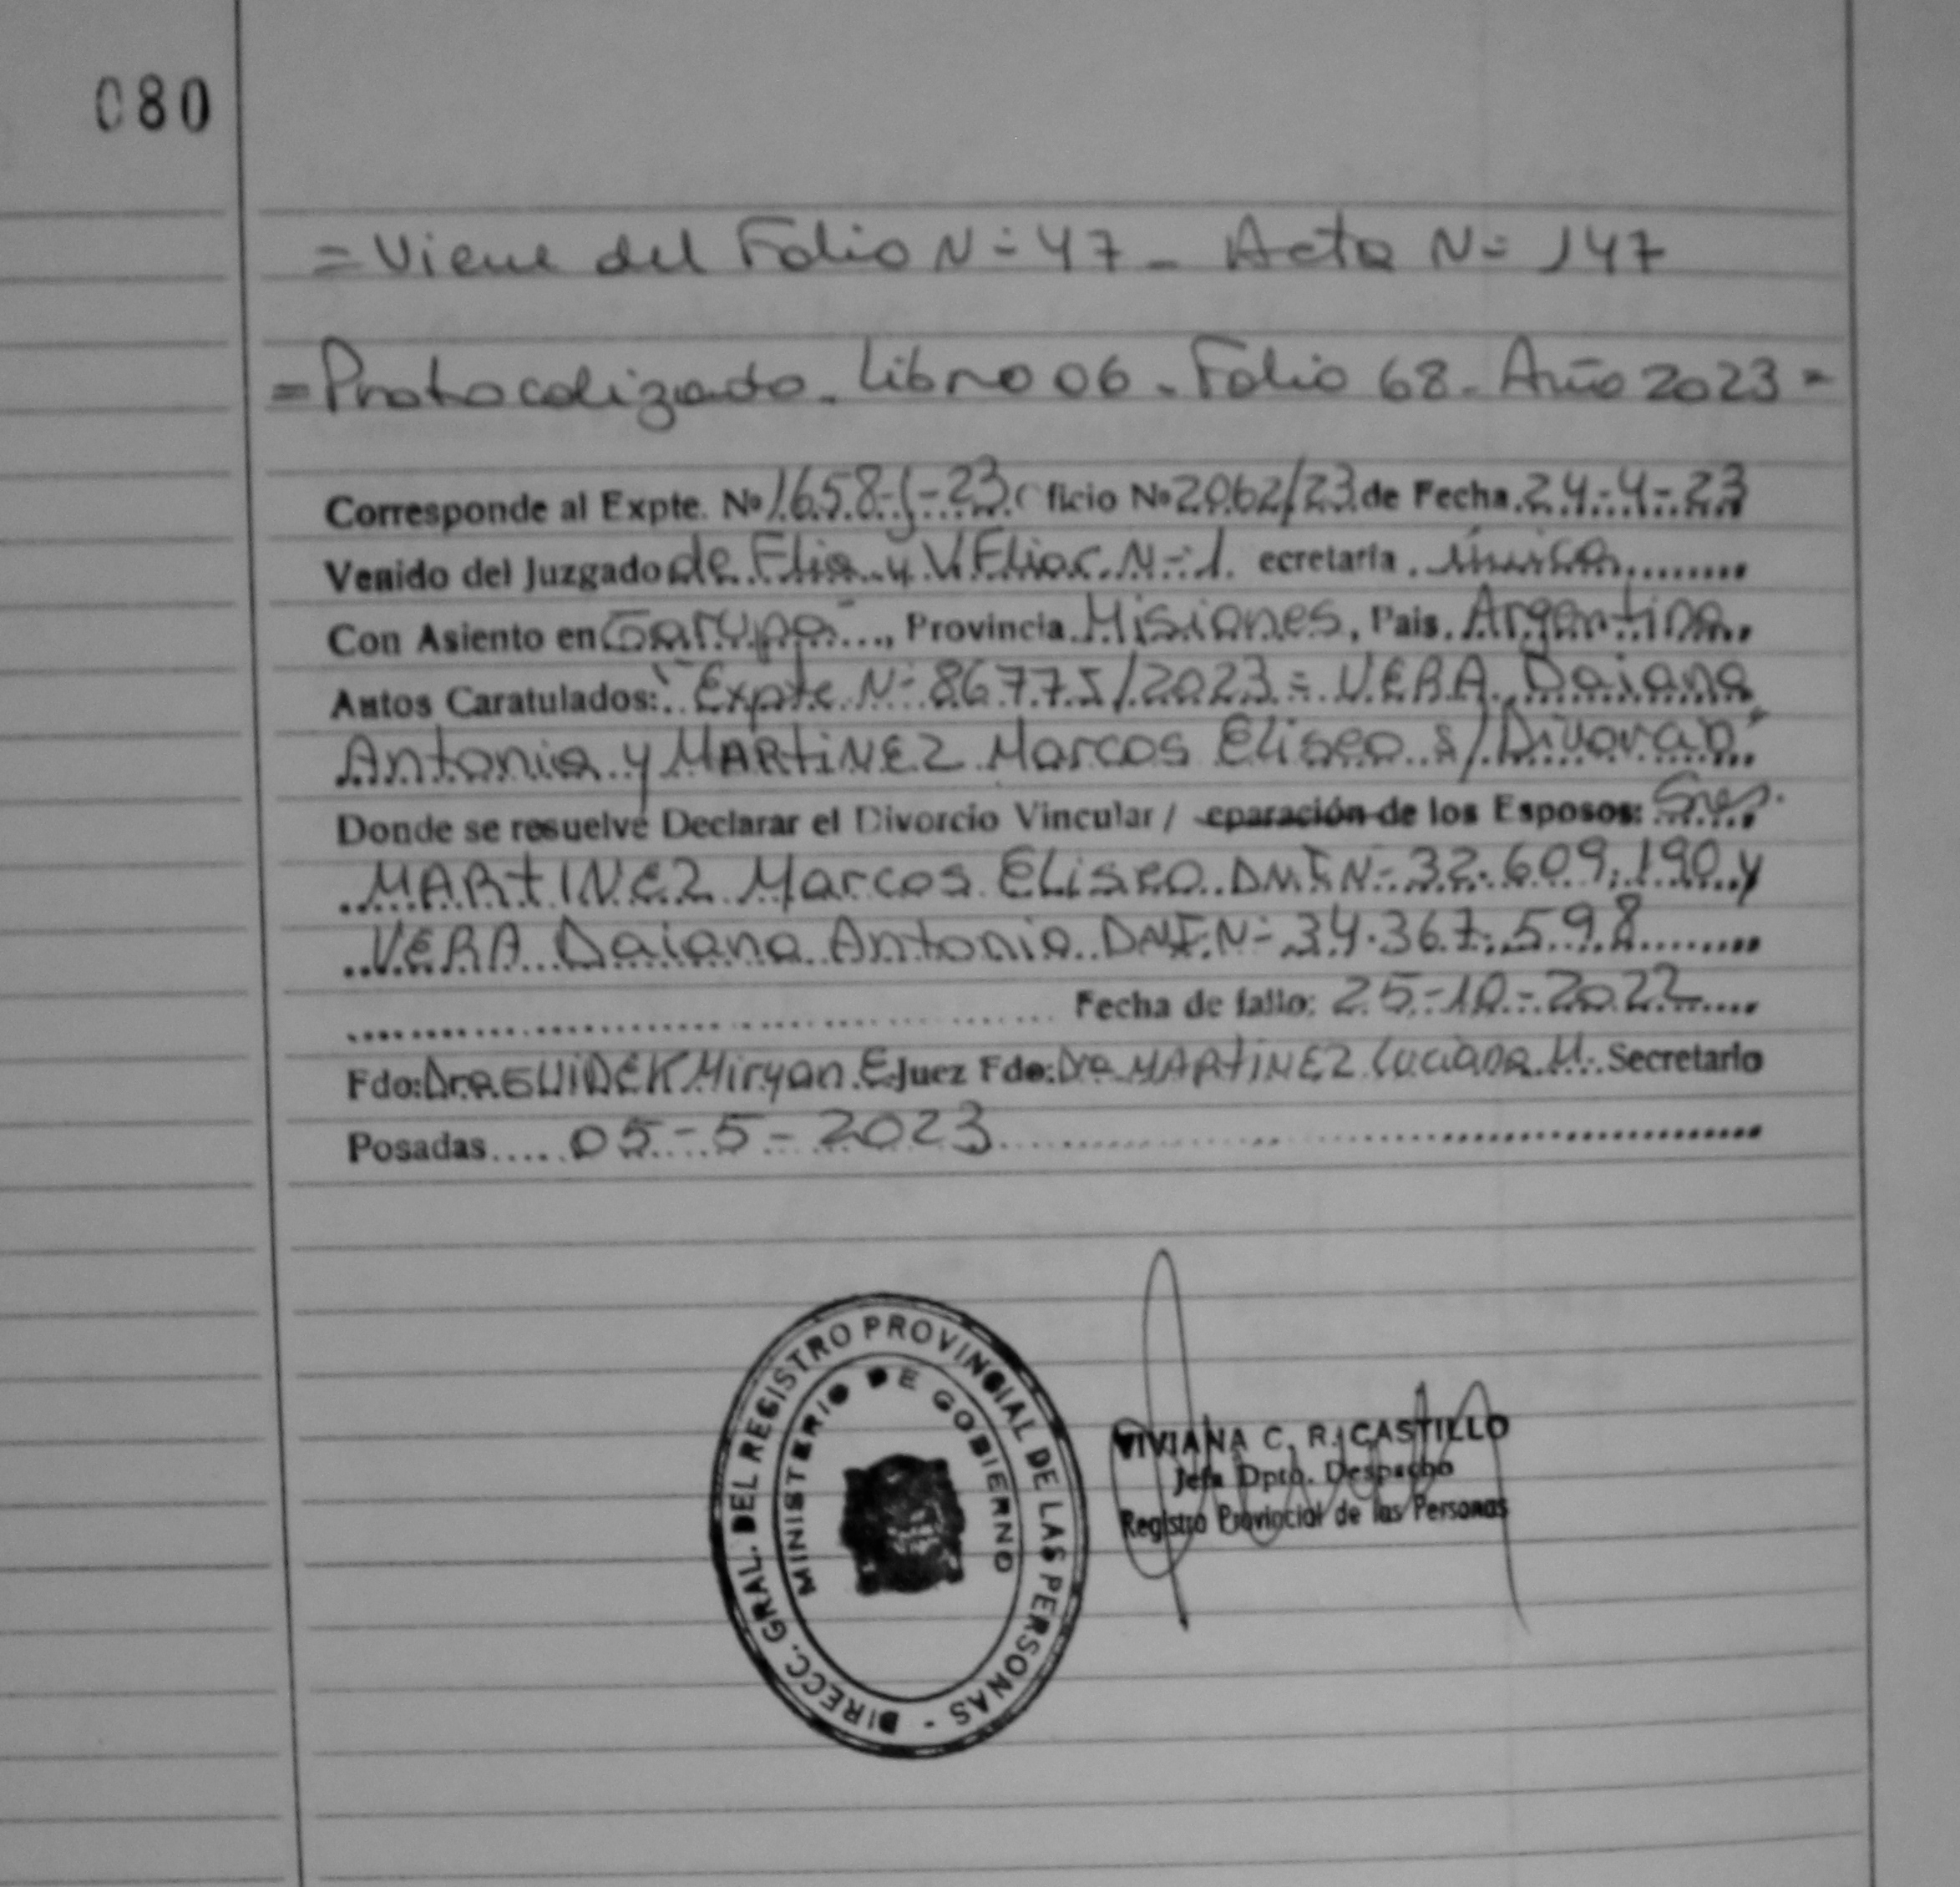 080
= Viene del Folio N= 47 - Acta N= 147
= Protocolizado. Libro 06 - Folio 68 - Año 2023 =
Corresponde al Expte. Nº 1658-J-23 ficio Nº 2062/23 de Fecha 24-4-23
Venido del Juzgado de Flia y V.Fliar N=1 ecretaría única
Con Asiento en Garupa, Provincia Misiones, Pais. Argentina
Autos Caratulados: "Expte N= 86775/2023 = VERA Daiana
Antonia y MARTINEZ Marcos Eliseo s/Divorcio"
Donde se resuelve Declarar el Divorcio Vincular / eparación de los Esposos: Sres.
MARTINEZ Marcos Eliseo DNI N= 32.609.190 y
VERA Daiana Antonia DNI N= 34.367.598
Fecha de fallo: 25-10-2022
Fdo: Dra Miryan E Juez Fdo: Dra MARTINEZ Luciana M. Secretario
Posadas 05-5-2023
DIRECC. GRAL. DEL REGISTRO PROVINCIAL DE LAS PERSONAS -
MINISTERIO DE GOBIERNO
VIVIANA C. R. CASTILLO
Jefa Dpto. Despacho
Registro Provincial de las Personas